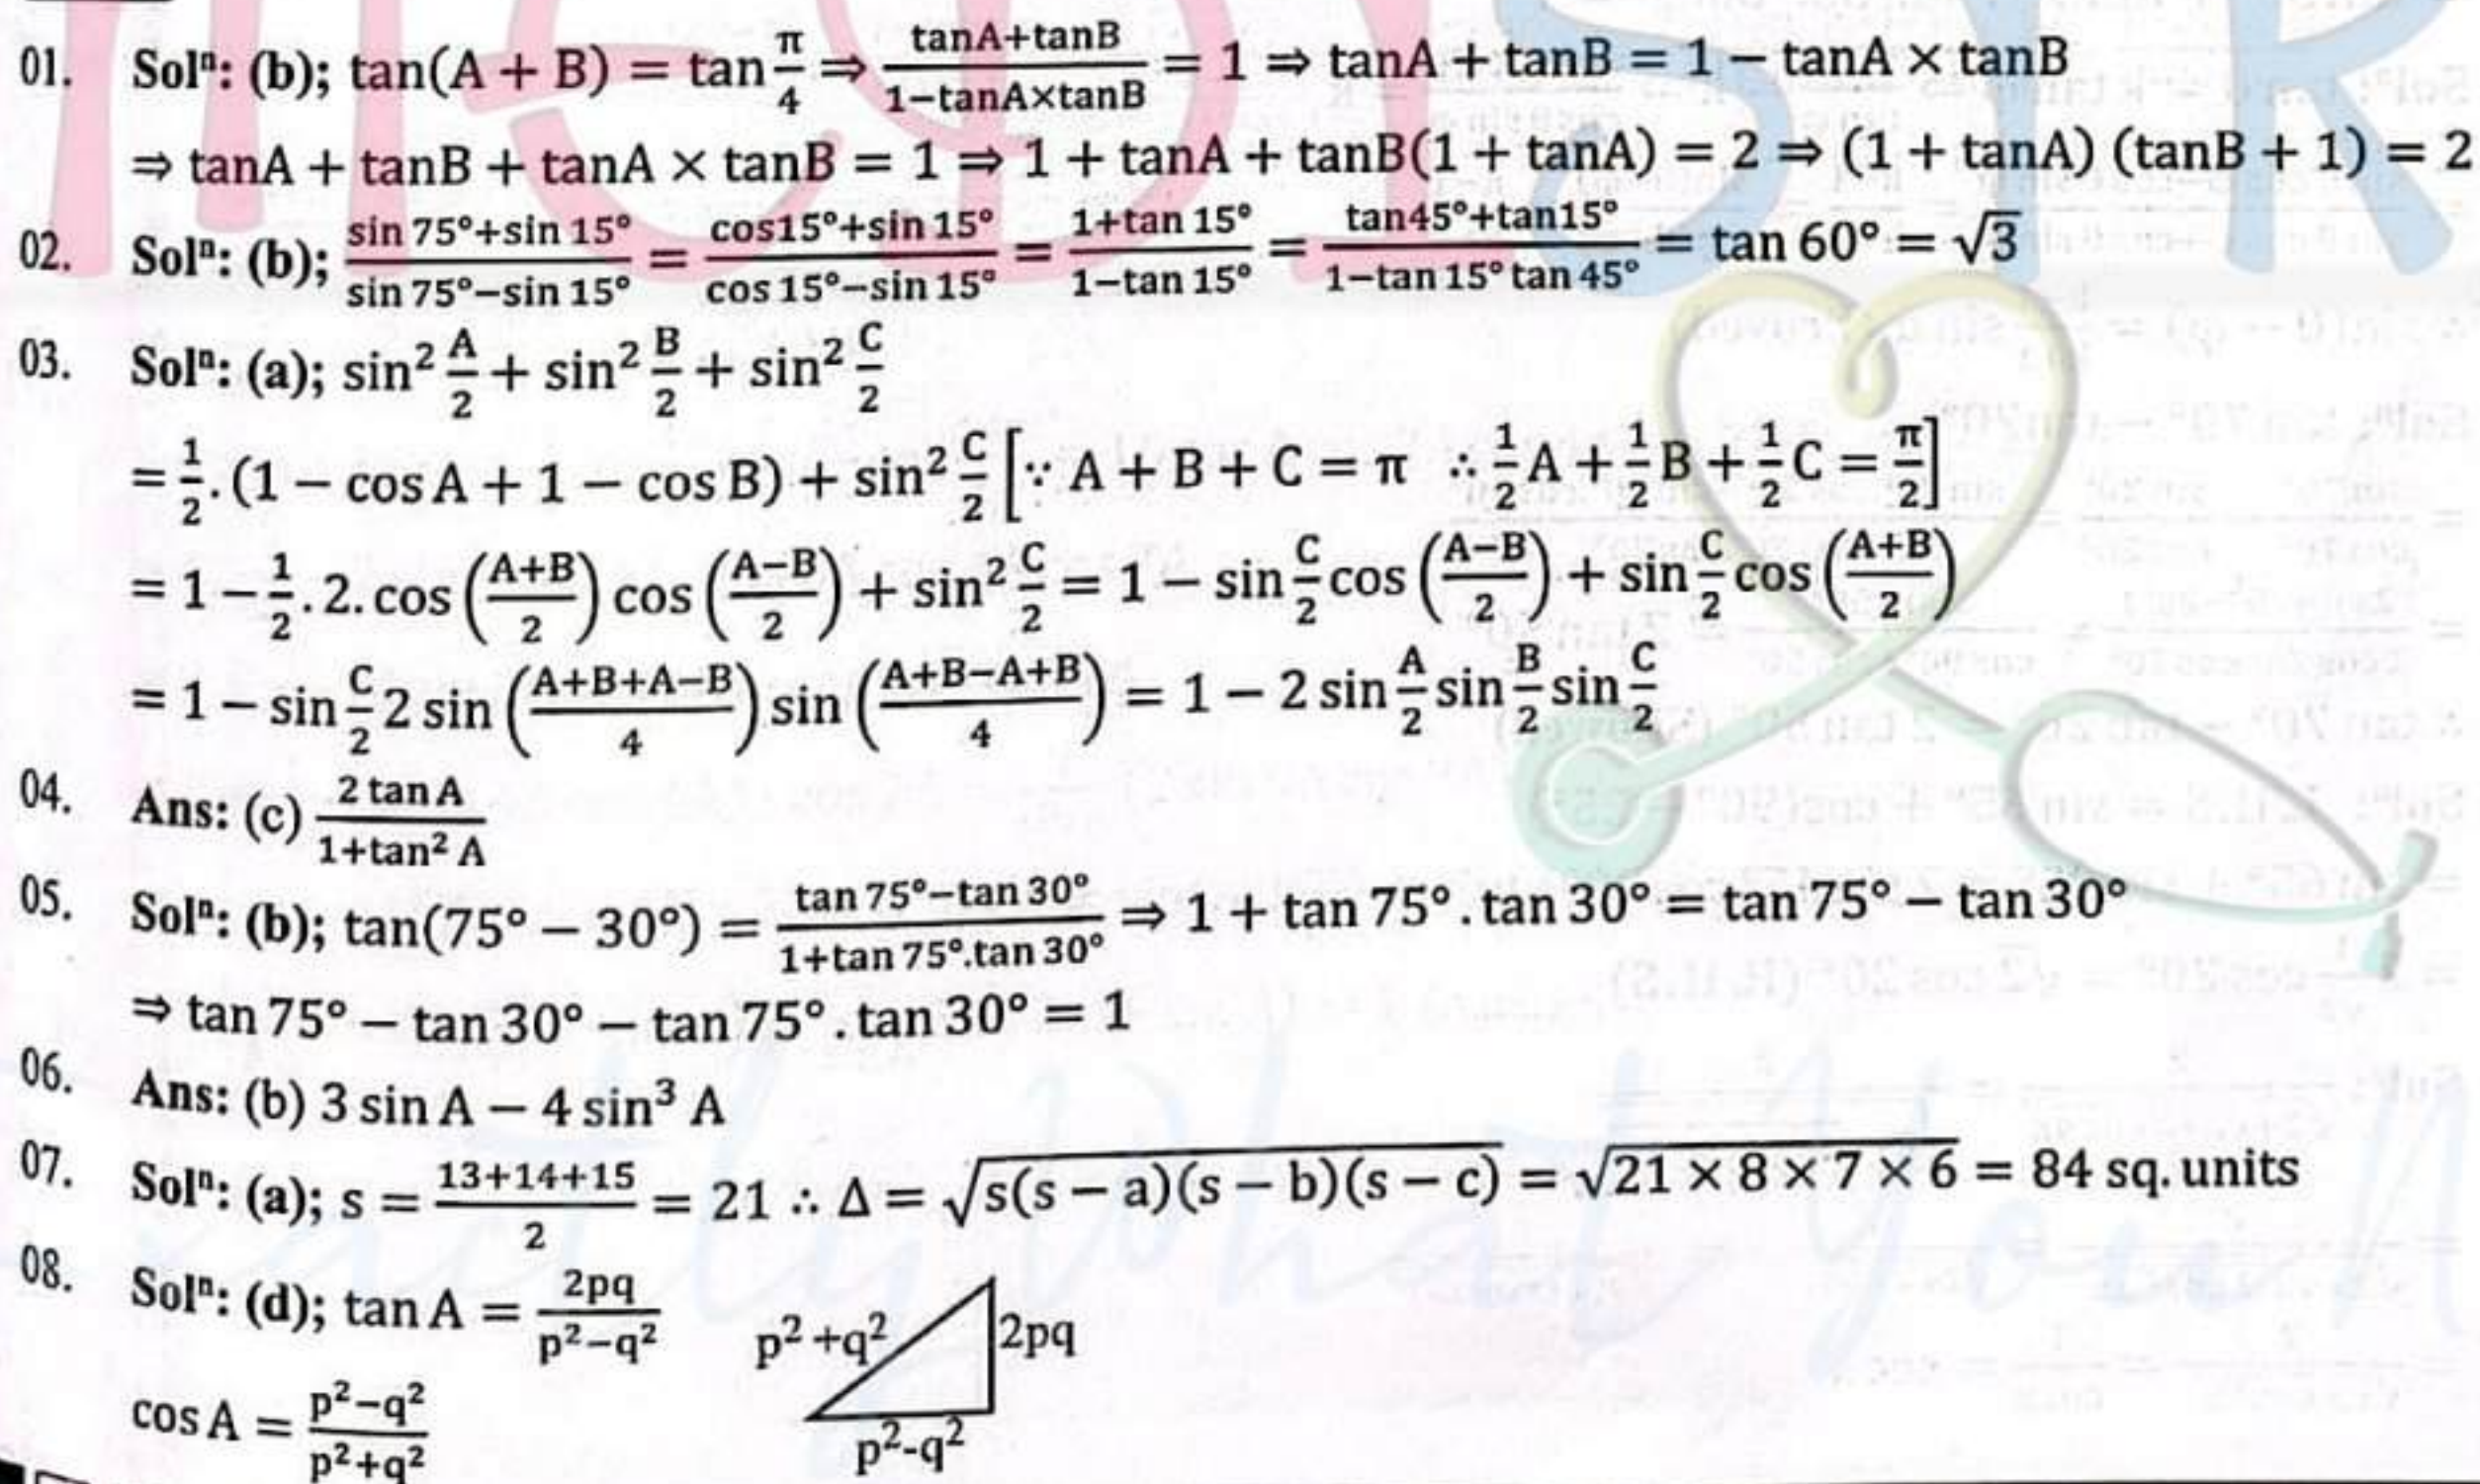 01. Solⁿ: (b); tan(A + B) = tan π/4 ⇒ (tanA+tanB)/(1−tanA×tanB) = 1 ⇒ tanA + tanB = 1 − tanA × tanB
⇒ tanA + tanB + tanA × tanB = 1 ⇒ 1 + tanA + tanB(1 + tanA) = 2 ⇒ (1 + tanA) (tanB + 1) = 2
02. Solⁿ: (b); (sin 75°+sin 15°)/(sin 75°−sin 15°) = (cos15°+sin 15°)/(cos 15°−sin 15°) = (1+tan 15°)/(1−tan 15°) = (tan45°+tan15°)/(1−tan 15° tan 45°) = tan 60° = √3
03. Solⁿ: (a); sin² A/2 + sin² B/2 + sin² C/2
= 1/2 . (1 − cos A + 1 − cos B) + sin² C/2 [∵ A + B + C = π ∴ 1/2 A + 1/2 B + 1/2 C = π/2]
= 1 − 1/2 . 2. cos ((A+B)/2) cos ((A−B)/2) + sin² C/2 = 1 − sin C/2 cos ((A−B)/2) + sin C/2 cos ((A+B)/2)
= 1 − sin C/2 2 sin ((A+B+A−B)/4) sin ((A+B−A+B)/4) = 1 − 2 sin A/2 sin B/2 sin C/2
04. Ans: (c) (2 tan A)/(1+tan² A)
05. Solⁿ: (b); tan(75° − 30°) = (tan 75°−tan 30°)/(1+tan 75°.tan 30°) ⇒ 1 + tan 75° . tan 30° = tan 75° − tan 30°
⇒ tan 75° − tan 30° − tan 75° . tan 30° = 1
06. Ans: (b) 3 sin A − 4 sin³ A
07. Solⁿ: (a); s = (13+14+15)/2 = 21 ∴ Δ = √(s(s − a)(s − b)(s − c)) = √(21 × 8 × 7 × 6) = 84 sq. units
08. Solⁿ: (d); tan A = 2pq/(p²−q²)
p²+q² 2pq
cos A = (p²−q²)/(p²+q²)
p²-q²